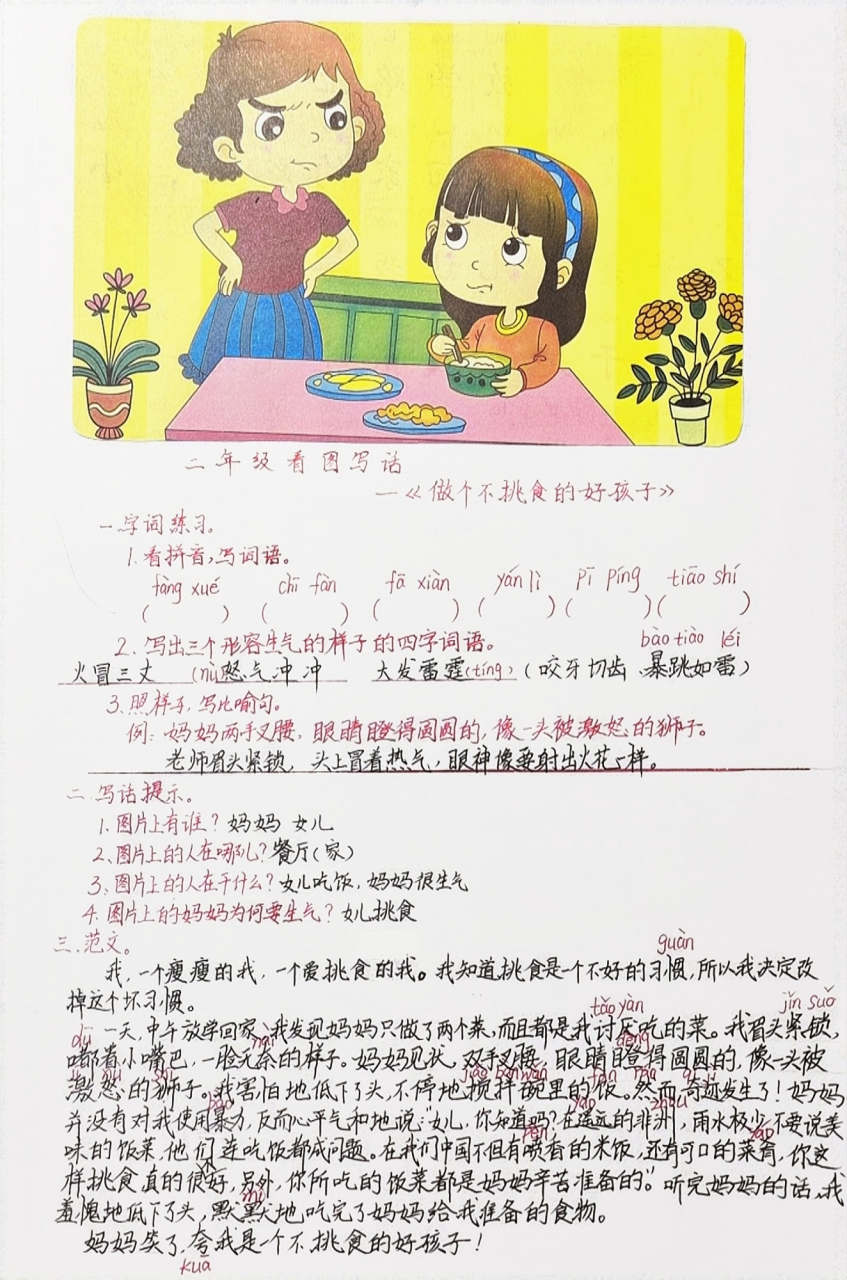 二年级看图写话
—《做个不挑食的好孩子》
一.字词练习。
1.看拼音,写词语。
fàng xué chī fàn fā xiàn yán lì pī píng tiāo shí
( ) ( ) ( ) ( ) ( ) ( )
2.写出三个形容生气的样子的四字词语。
bào tiào léi
火冒三丈 (nù)怒气冲冲 大发雷霆(tíng)(咬牙切齿、暴跳如雷)
3.照样子,写比喻句。
例:妈妈两手叉腰,眼睛瞪得圆圆的,像一头被激怒的狮子。
老师眉头紧锁,头上冒着热气,眼神像要射出火花一样。
二.写话提示。
1.图片上有谁?妈妈 女儿
2.图片上的人在哪儿?餐厅(家)
3.图片上的人在干什么?女儿吃饭,妈妈很生气
4.图片上的妈妈为何要生气?女儿挑食
三.范文。
guàn
我,一个瘦瘦的我,一个爱挑食的我。我知道挑食是一个不好的习惯,所以我决定改
掉这个坏习惯。
tǎo yàn jǐn suǒ
一天,中午放学回家,我发现妈妈只做了两个菜,而且都是我讨厌吃的菜。我眉头紧锁,
dū nài dèng
嘟着小嘴巴,一脸无奈的样子。妈妈见状,双手叉腰,眼睛瞪得圆圆的,像一头被
激怒的狮子。我害怕地低下了头,不停地搅拌碗里的饭。然而奇迹发生了!妈妈
bào yáo zhōu
并没有对我使用暴力,反而心平气和地说:“女儿,你知道吗?在遥远的非洲,雨水极少,不要说美
pēn yáo
味的饭菜,他们连吃饭都成问题。在我们中国不但有喷香的米饭,还有可口的菜肴,你这
样挑食真的很不好,另外,你所吃的饭菜都是妈妈辛苦准备的。”听完妈妈的话,我
mò
羞愧地低下了头,默默地吃完了妈妈给我准备的食物。
妈妈笑了,夸我是一个不挑食的好孩子!
kuā